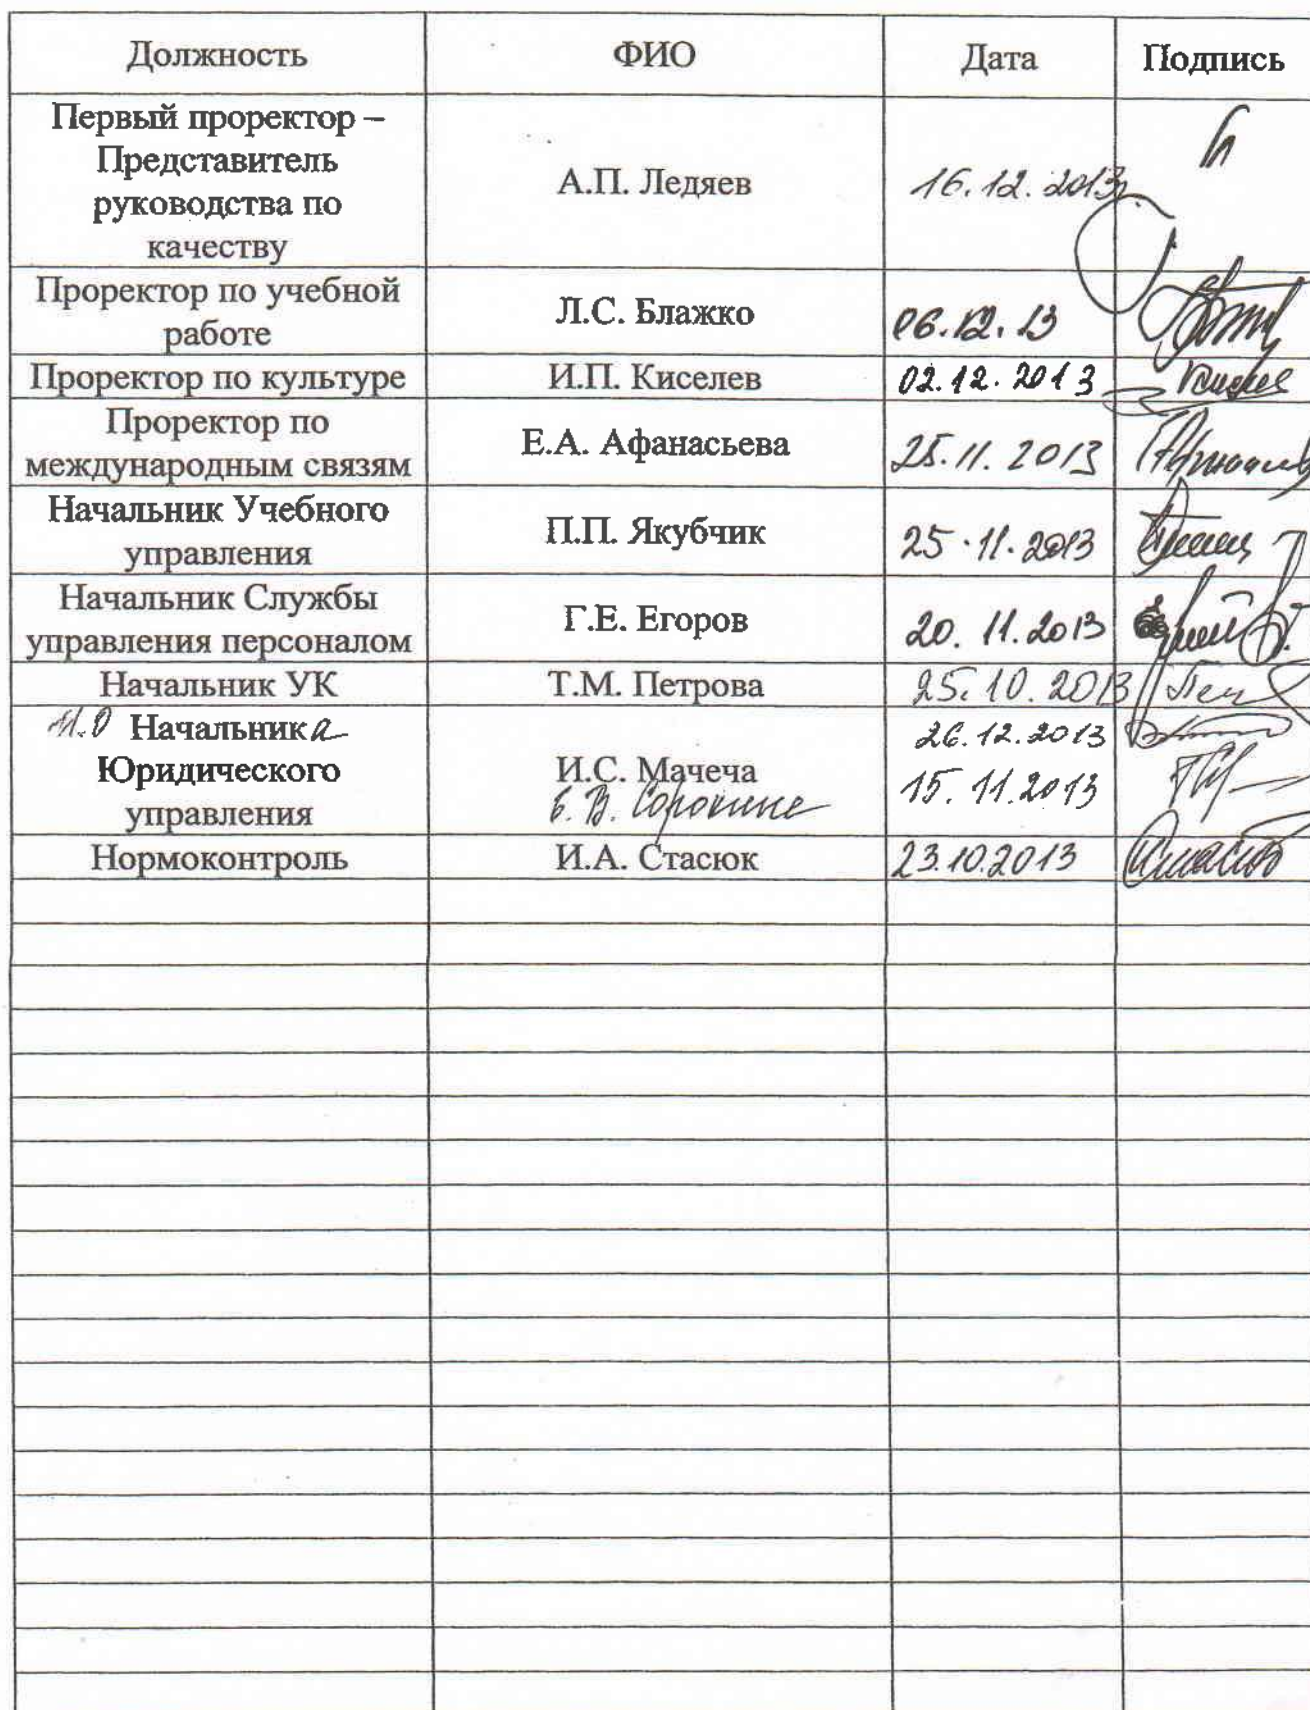 Должность ФИО Дата Подпись
Первый проректор –
Представитель
руководства по
качеству
А.П. Ледяев 16.12.2013г.
Проректор по учебной
работе
Л.С. Блажко 06.12.13
Проректор по культуре И.П. Киселев 02.12.2013
Проректор по
международным связям
Е.А. Афанасьева 25.11.2013
Начальник Учебного
управления
П.П. Якубчик 25.11.2013
Начальник Службы
управления персоналом
Г.Е. Егоров 20.11.2013
Начальник УК Т.М. Петрова 25.10.2013
И.О Начальника
Юридического
управления
И.С. Мачеча 26.12.2013
В. 15.11.2013
Нормоконтроль И.А. Стасюк 23.10.2013